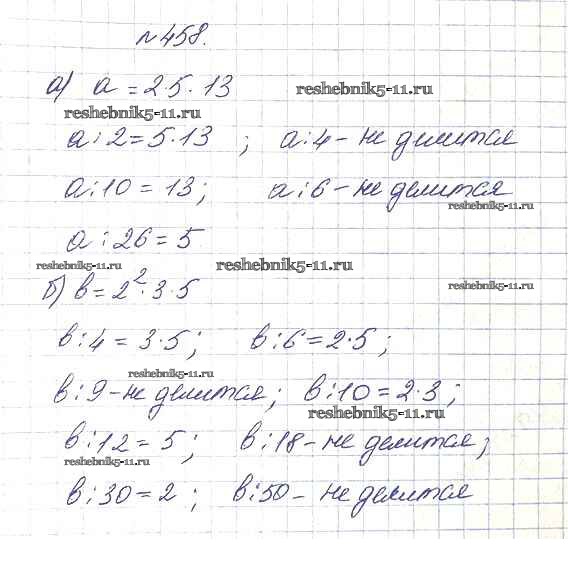 №458.
а) a = 2·5·13
reshebnik5-11.ru
reshebnik5-11.ru
a:2=5·13 ; a:4 - не делится
a:10 = 13; a:6 - не делится
reshebnik5-11.ru
a:26=5
reshebnik5-11.ru
reshebnik5-11.ru
б) b=2²·3·5
reshebnik5-11.ru
b:4=3·5; b:6=2·5;
reshebnik5-11.ru
b:9 - не делится; b:10=2·3;
reshebnik5-11.ru
b:12=5; b:18 - не делится;
reshebnik5-11.ru
b:30=2; b:50 - не делится